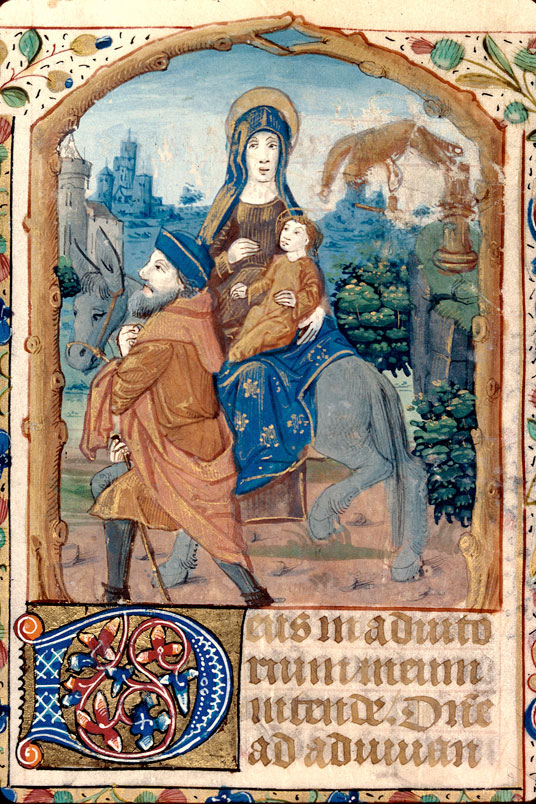 Deus in adiuto
rium meum
intende. Dñe
ad adiuuan